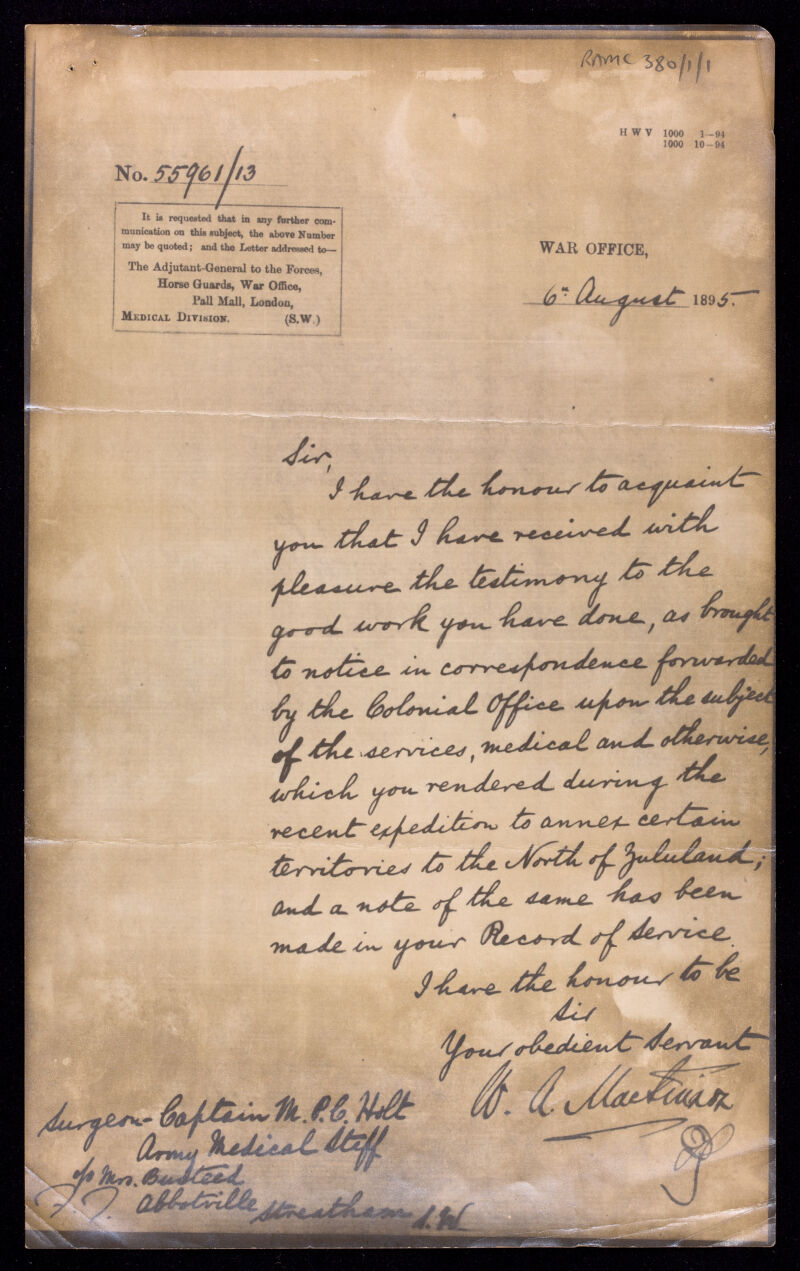 RAMC 380/1/1
H W V 1000 1—94
1000 10—94
No. 55961/13
It is requested that in any further com-
munication on this subject, the above Number
may be quoted; and the Letter addressed to—
The Adjutant-General to the Forces,
Horse Guards, War Office,
Pall Mall, London,
MEDICAL DIVISION. (S.W.)
WAR OFFICE,
6th August 1895.
Sir,
I have the honour to acquaint
you that I have received with
pleasure the testimony to the
good work you have done, as brought
to notice in correspondence forwarded
by the Colonial Office upon the subject
of the services, medical and otherwise,
which you rendered during the
recent expedition to annex certain
territories to the North of Zululand;
and a note of the same has been
made in your Record of Service.
I have the honour to be
Sir
Your obedient Servant
W. A. Mackinnon
Surgeon-Captain M. P. C. Holt
Army Medical Staff
c/o Mrs. Busteed
Abbotville
Streatham S.W